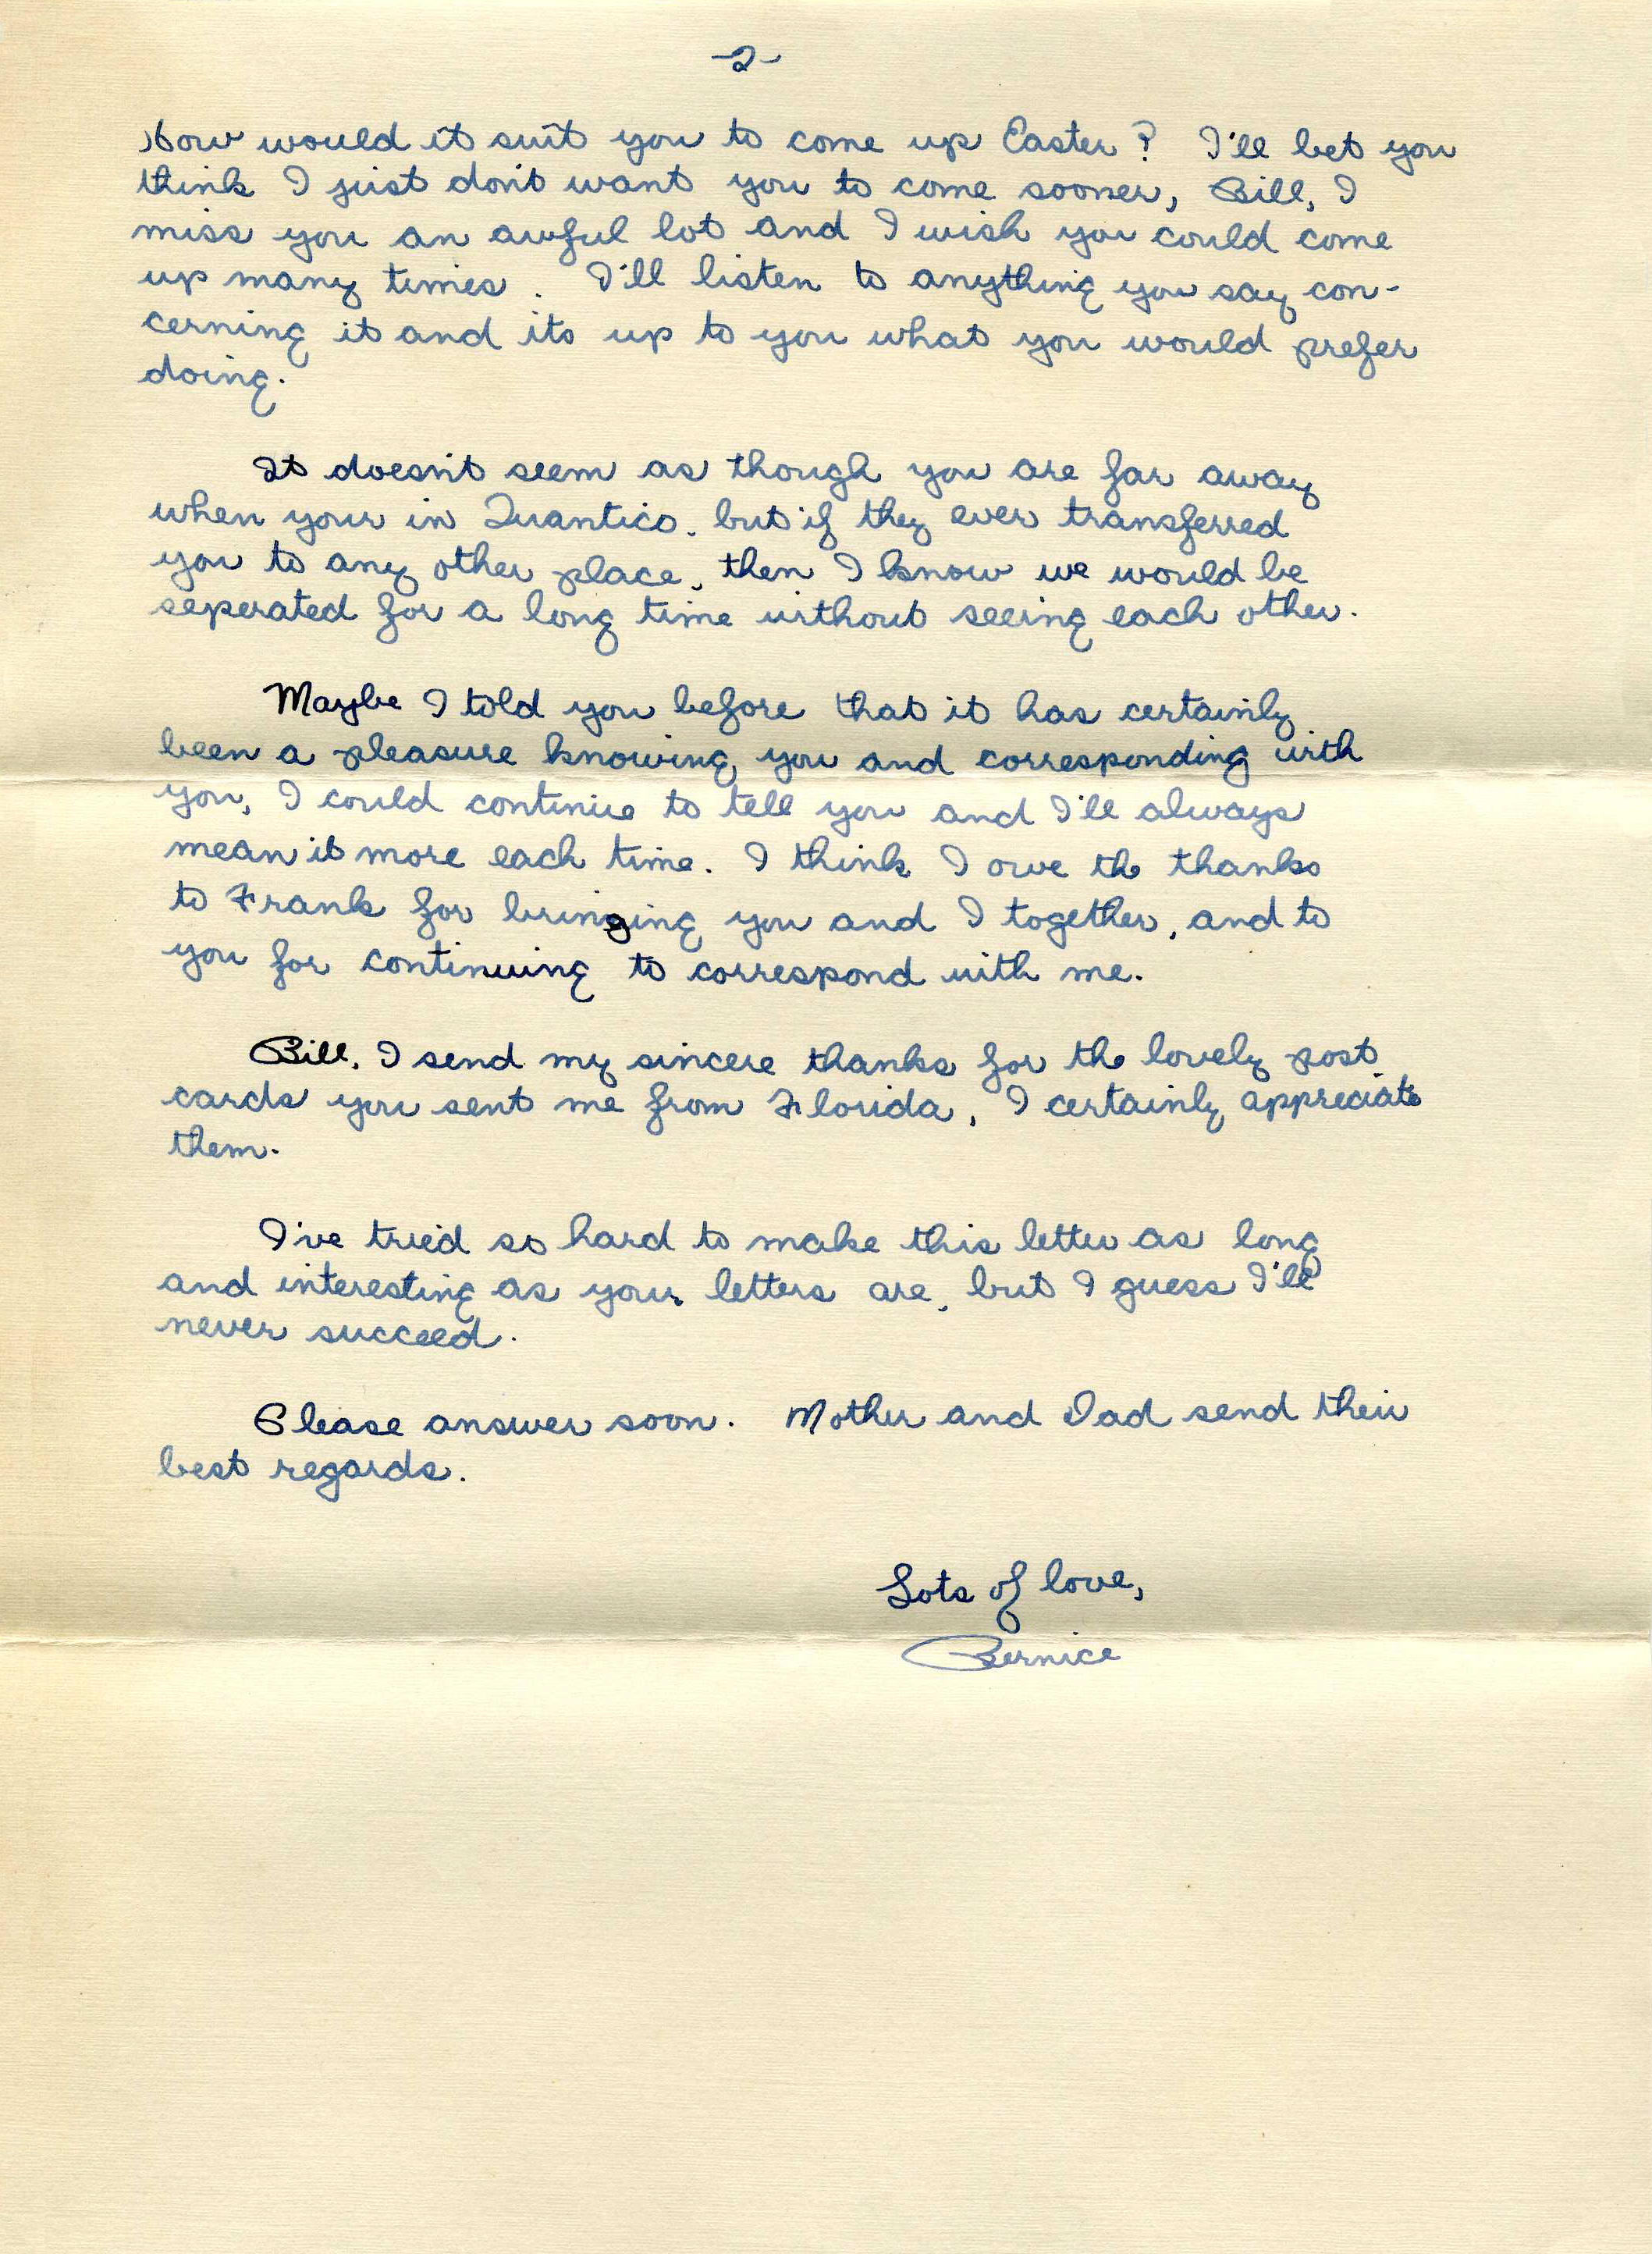 -2-
How would it suit you to come up Easter? I'll bet you
think I just don't want you to come sooner, Bill, I
miss you an awful lot and I wish you could come
up many times. I'll listen to anything you say con-
cerning it and its up to you what you would prefer
doing.
It doesn't seem as though you are far away
when your in Quantico, but if they ever transferred
you to any other place, then I know we would be
seperated for a long time without seeing each other.
Maybe I told you before that it has certainly
been a pleasure knowing you and corresponding with
you, I could continue to tell you and I'll always
mean it more each time. I think I owe the thanks
to Frank for bringing you and I together, and to
you for continuing to correspond with me.
Bill, I send my sincere thanks for the lovely post
cards you sent me from Florida, I certainly appreciate
them.
I've tried so hard to make this letter as long
and interesting as your letters are, but I guess I'll
never succeed.
Please answer soon. Mother and Dad send their
best regards.
Lots of love,
Bernice